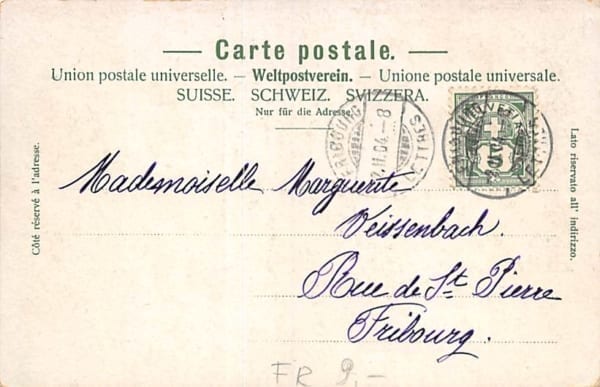 Carte postale.
Union postale universelle. — Weltpostverein. — Unione postale universale.
SUISSE. SCHWEIZ. SVIZZERA.
Nur für die Adresse.
Côté réservé à l'adresse.
Lato riservato all' indirizzo.
FRIBOURG
LETTRES
2.II.04.-8
5
Mademoiselle Marguerite
Weissenbach.
Rue de St. Pierre
Fribourg.
FR 9.-